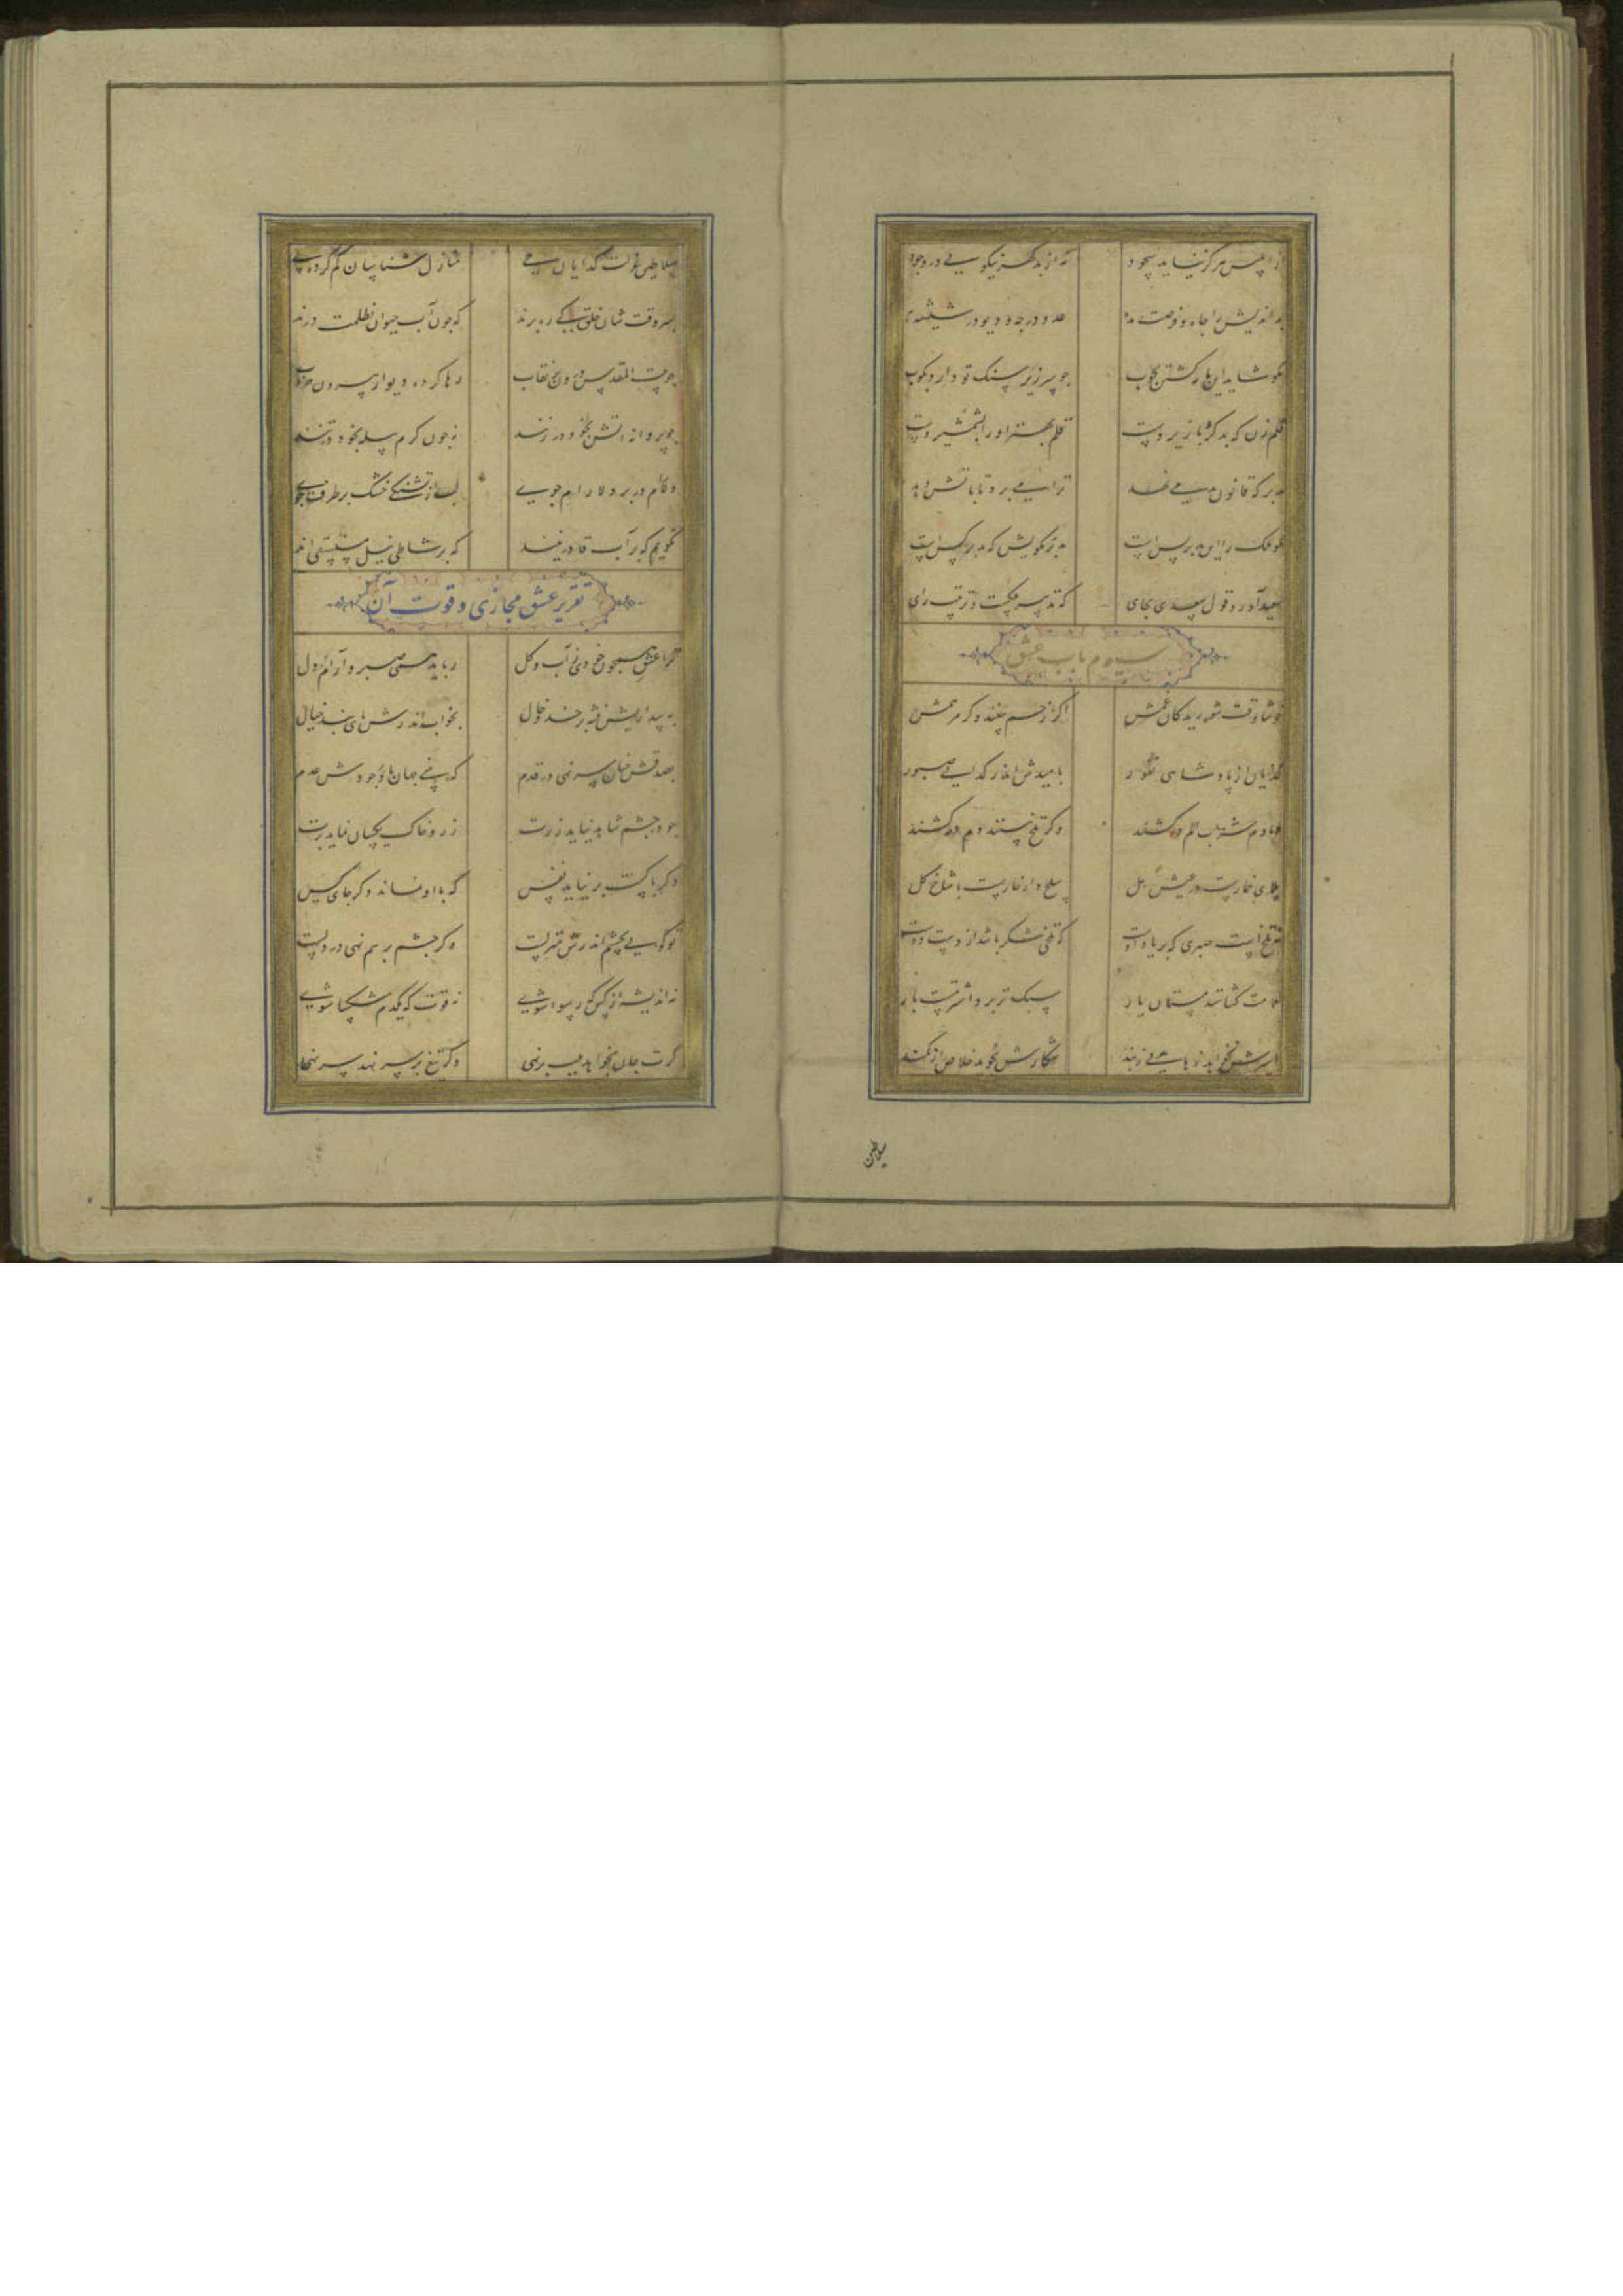 ز ابلیس هرکز نیاید سجود نه از بدکهر نیکویی در وجود
بد اندیش را جاه و فرصت مده عدو در چه و دیو در شیشه به
مکو شاید این مار کشتن بچوب چو سر زیر سنک تو دارد بکوب
قلم زن که بد کرد با زیر دست قلم بهتر او را بشمشیر دست
مدبر که قانون بد می نهد ترا می برد تا بآتش دهد
مکو ملک را این مدبر بس است مدبر مکویش که مدبر کس است
سعید آورد قول سعدی بجای که تدبیر ملکست و ترتیب رای
سیوم باب عشق
خوشا وقت شوریدکان غمش اکر زخم بینند وکر مرهمش
کدایان از پادشاهی نفور بامیدش اندر کدایی صبور
دمادم شراب الم درکشند وکر تلخ بینند دم درکشند
بلای خمارست در عیش مل سلح دار خارست با شاخ کل
نه تلخ است صبری که بر یاد اوست که تلخی شکر باشد از دست دوست
ملامت کشانند مستان یار سبک تر برد اشتر مست بار
اسیرش نخواهد رهایی ز بند شکارش نجوید خلاص از کمند
سلاطین
سلاطین عزلت کدایان حی منازل شناسان کم کرده پی
بسر وقت شان خلق کی ره برند که چون آب حیوان بظلمت درند
چو بیت المقدس درون پر قباب رها کرده دیوار بیرون خراب
چو پروانه آتش بخود در زنند نه چون کرم پیله بخود در تنند
دلارام در بر دلارام جوی لب از تشنکی خشک بر طرف جوی
نکویم که بر آب قادر نیند که بر شاطی نیل مستسقی اند
تقریر عشق مجازی و قوت آن
ترا عشق همچون خودی ز آب و کل رباید همی صبر و آرام دل
به بیداریش فتنه بر خد و خال بخواب اندرش پای بند خیال
بصدقش چنان سر نهی در قدم که بینی جهان با وجودش عدم
چو در چشم شاهد نیاید زرت زر و خاک یکسان نماید برت
دکر با کست بر نیاید نفس که با او نماند دکر جای کس
تو کویی بچشم اندرش منزلست وکر چشم بر هم نهی در دلست
نه اندیشه از کس که رسوا شوی نه قوت که یکدم شکیبا شوی
کرت جان بخواهد بلب بر نهی وکر تیغ بر سر نهد سر نهی